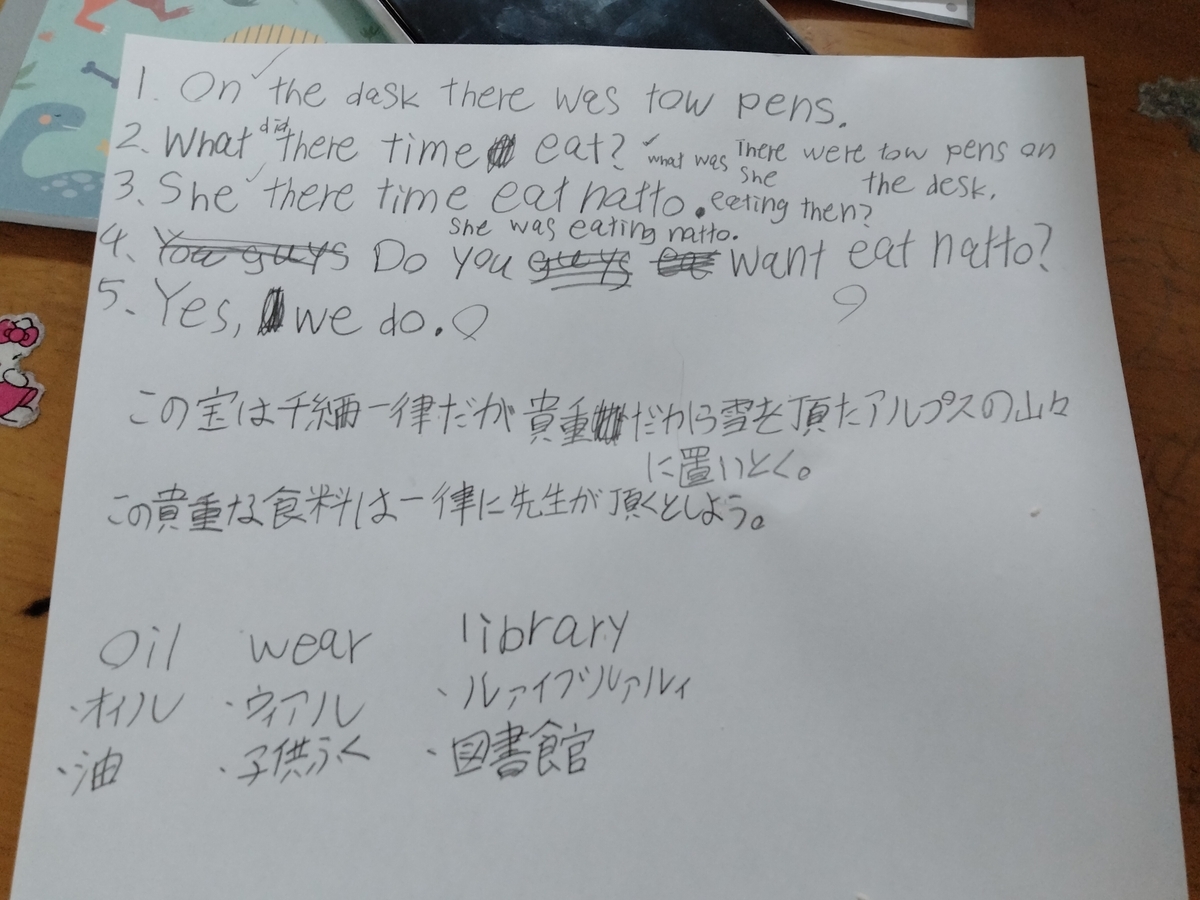 1. On the dask there was tow pens.
2. What did there time eat? what was she eating then?
There were tow pens on the desk.
3. She there time eat natto.
She was eating natto.
4. You guys Do you guys want eat natto?
5. Yes, we do.
この宝は千編一律だが貴重だから雪を頂たアルプスの山々
に置いとく。
この貴重な食料は一律に先生が頂くとしよう。
Oil wear library
・オイル ・ウィアル ・ルァイブルァルィ
・油 ・子供ふく ・図書館